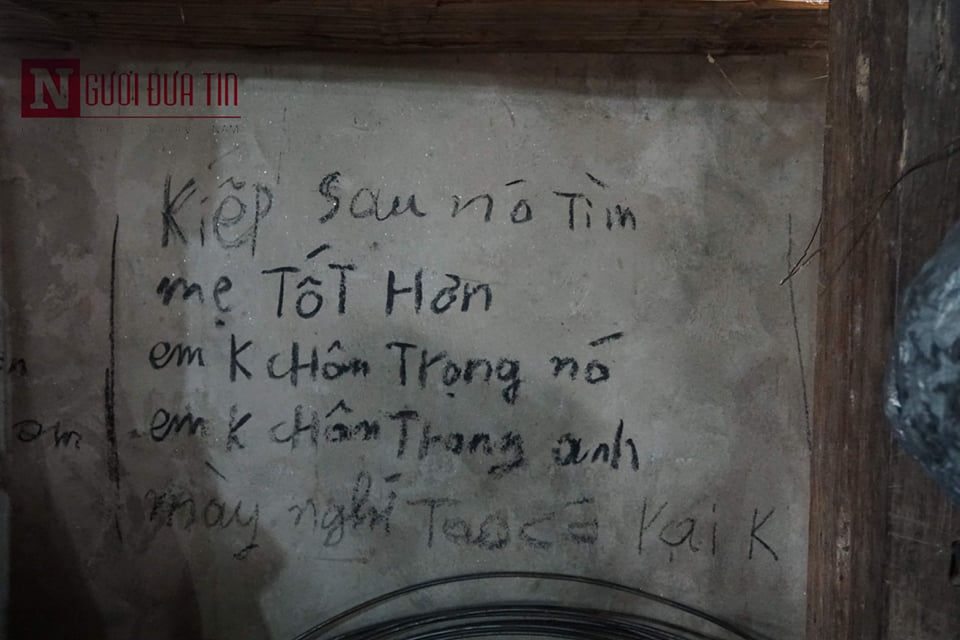 NGƯỜI ĐƯA TIN
Kiếp Sau nó Tìm
mẹ TốT Hơn
em K cHôn Trọng nó
em K cHôn Trọng anh
mày nghĩ Tao có Vại K